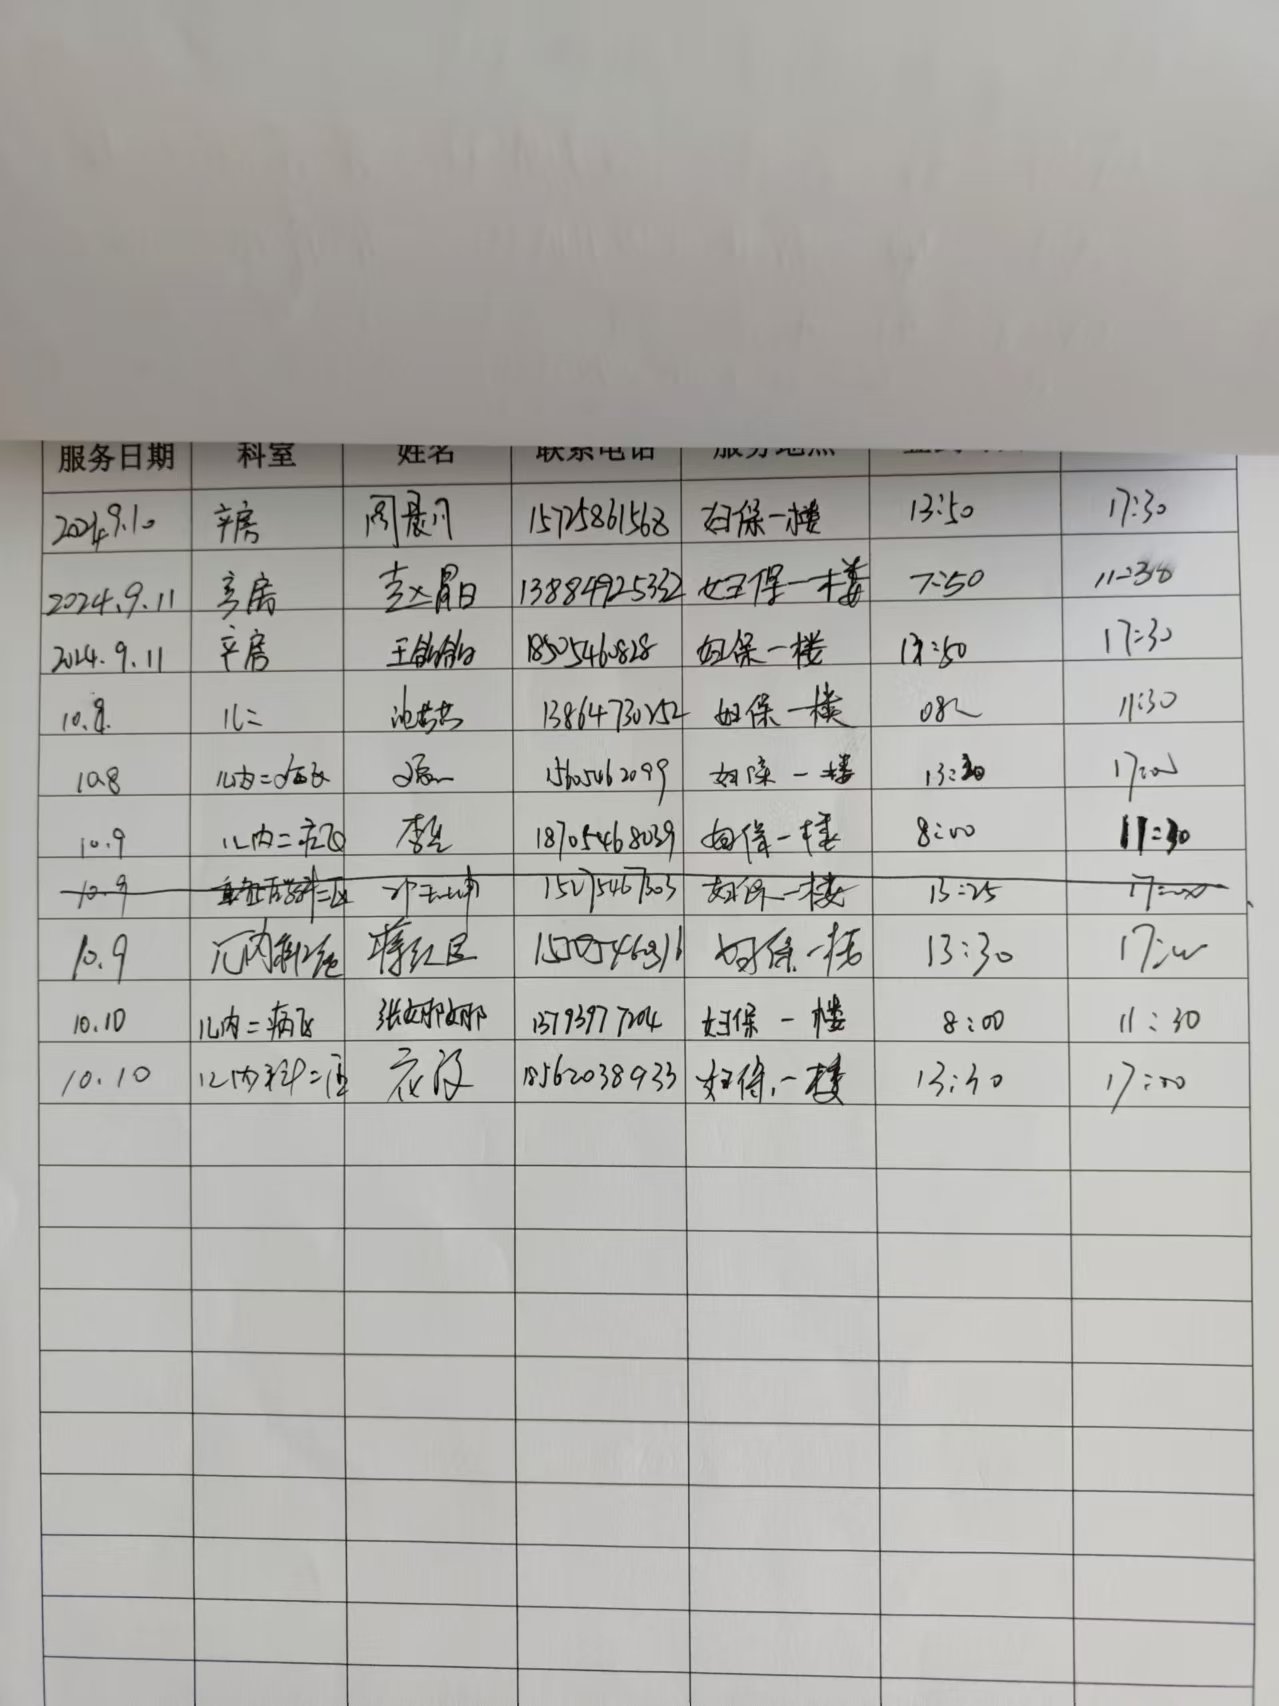 服务日期 科室 姓名 联系电话 服务地点
2024.9.10 产房 周晨川 15725861568 妇保一楼 13:50 17:30
2024.9.11 产房 13884925332 妇保一楼 7:50 11:30
2024.9.11 产房 王鸽鸽 18505460828 妇保一楼 13:50 17:30
10.8. 儿二 13864730252 妇保一楼 11:30
10.8 儿内二病区 15605462099 妇保一楼 13:30 17:00
10.9 儿内二病区 18705468039 妇保一楼 8:00 11:30
10.9 15275467303 妇保一楼 13:25 17:00
10.9 妇保一楼 13:30 17:00
10.10 儿内二病区 张娜娜 13793977204 妇保一楼 8:00 11:30
10.10 儿内科二区 18562038933 妇保一楼 13:30 17:00